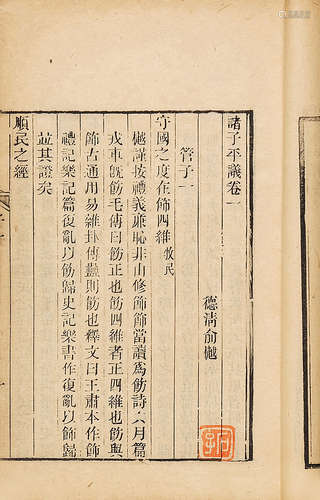 諸子平議卷一
德清俞樾
管子一
守國之度在飾四維牧民
樾謹按禮義廉恥非由修飾飾當讀為飭詩六月篇
戎車旣飭毛傳曰飭正也飭四維者正四維也飭與
飾古通用易雜卦傳蠱則飭也釋文曰王肅本作飾
禮記樂記篇復亂以飭歸史記樂書作復亂以飾歸
竝其證矣
順民之經